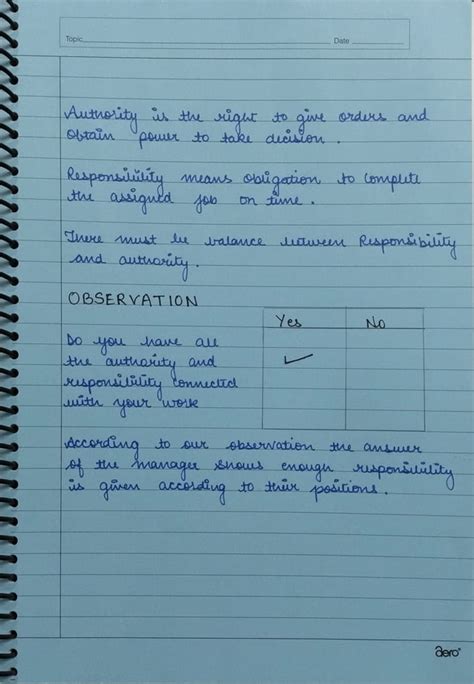 Topic
Date
Authority is the right to give orders and
obtain power to take decision.
Responsibility means obligation to complete
the assigned job on time.
There must be balance between Responsibility
and authority.
OBSERVATION
Yes No
Do you have all
the authority and
responsibility connected
with your work
✓
According to our observation the answer
of the manager shows enough responsibility
is given according to their positions.
aero